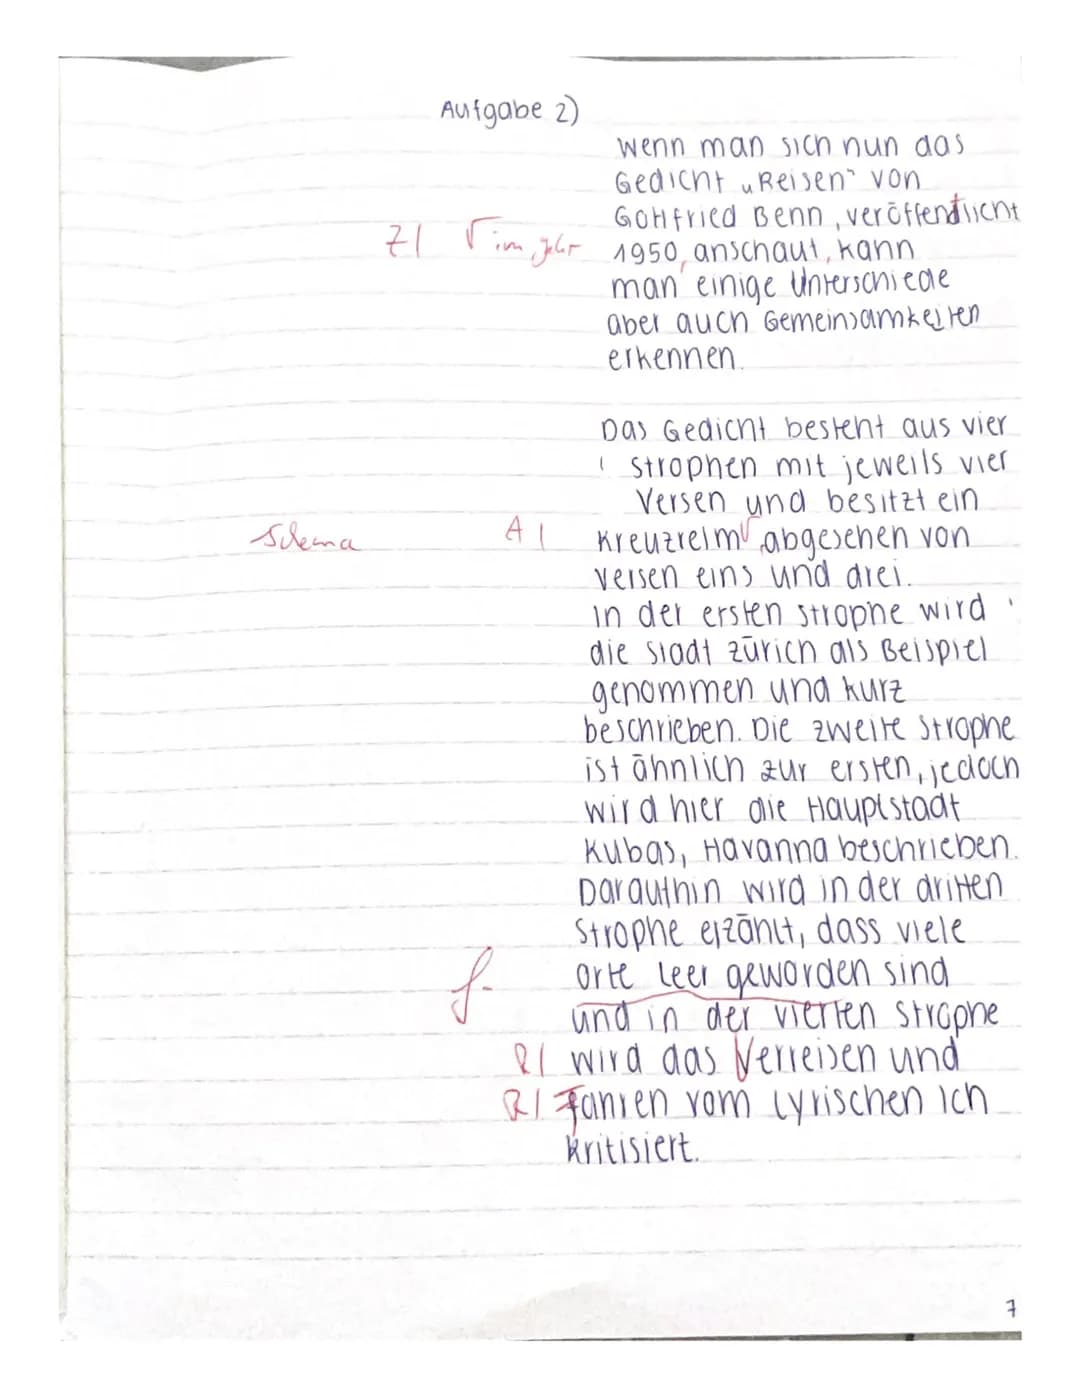 Aufgabe 2)
Wenn man sich nun das
Gedicht „Reisen“ von
Gottfried Benn, veröffentlicht
Z| √ im Jahr 1950, anschaut, kann
man einige Unterschiede
aber auch Gemeinsamkeiten
erkennen.
Das Gedicht besteht aus vier
Strophen mit jeweils vier
Versen und besitzt ein
Schema A| Kreuzreim√, abgesehen von
Versen eins und drei.
In der ersten Strophe wird
die Stadt Zürich als Beispiel
genommen und kurz
beschrieben. Die zweite Strophe
ist ähnlich zur ersten, jedoch
wird hier die Hauptstadt
Kubas, Havanna beschrieben.
Daraufhin wird in der dritten
Strophe erzählt, dass viele
f. Orte leer geworden sind
und in der vierten Strophe
R| wird das Verreisen und
R| Fahren vom lyrischen Ich
kritisiert.
7